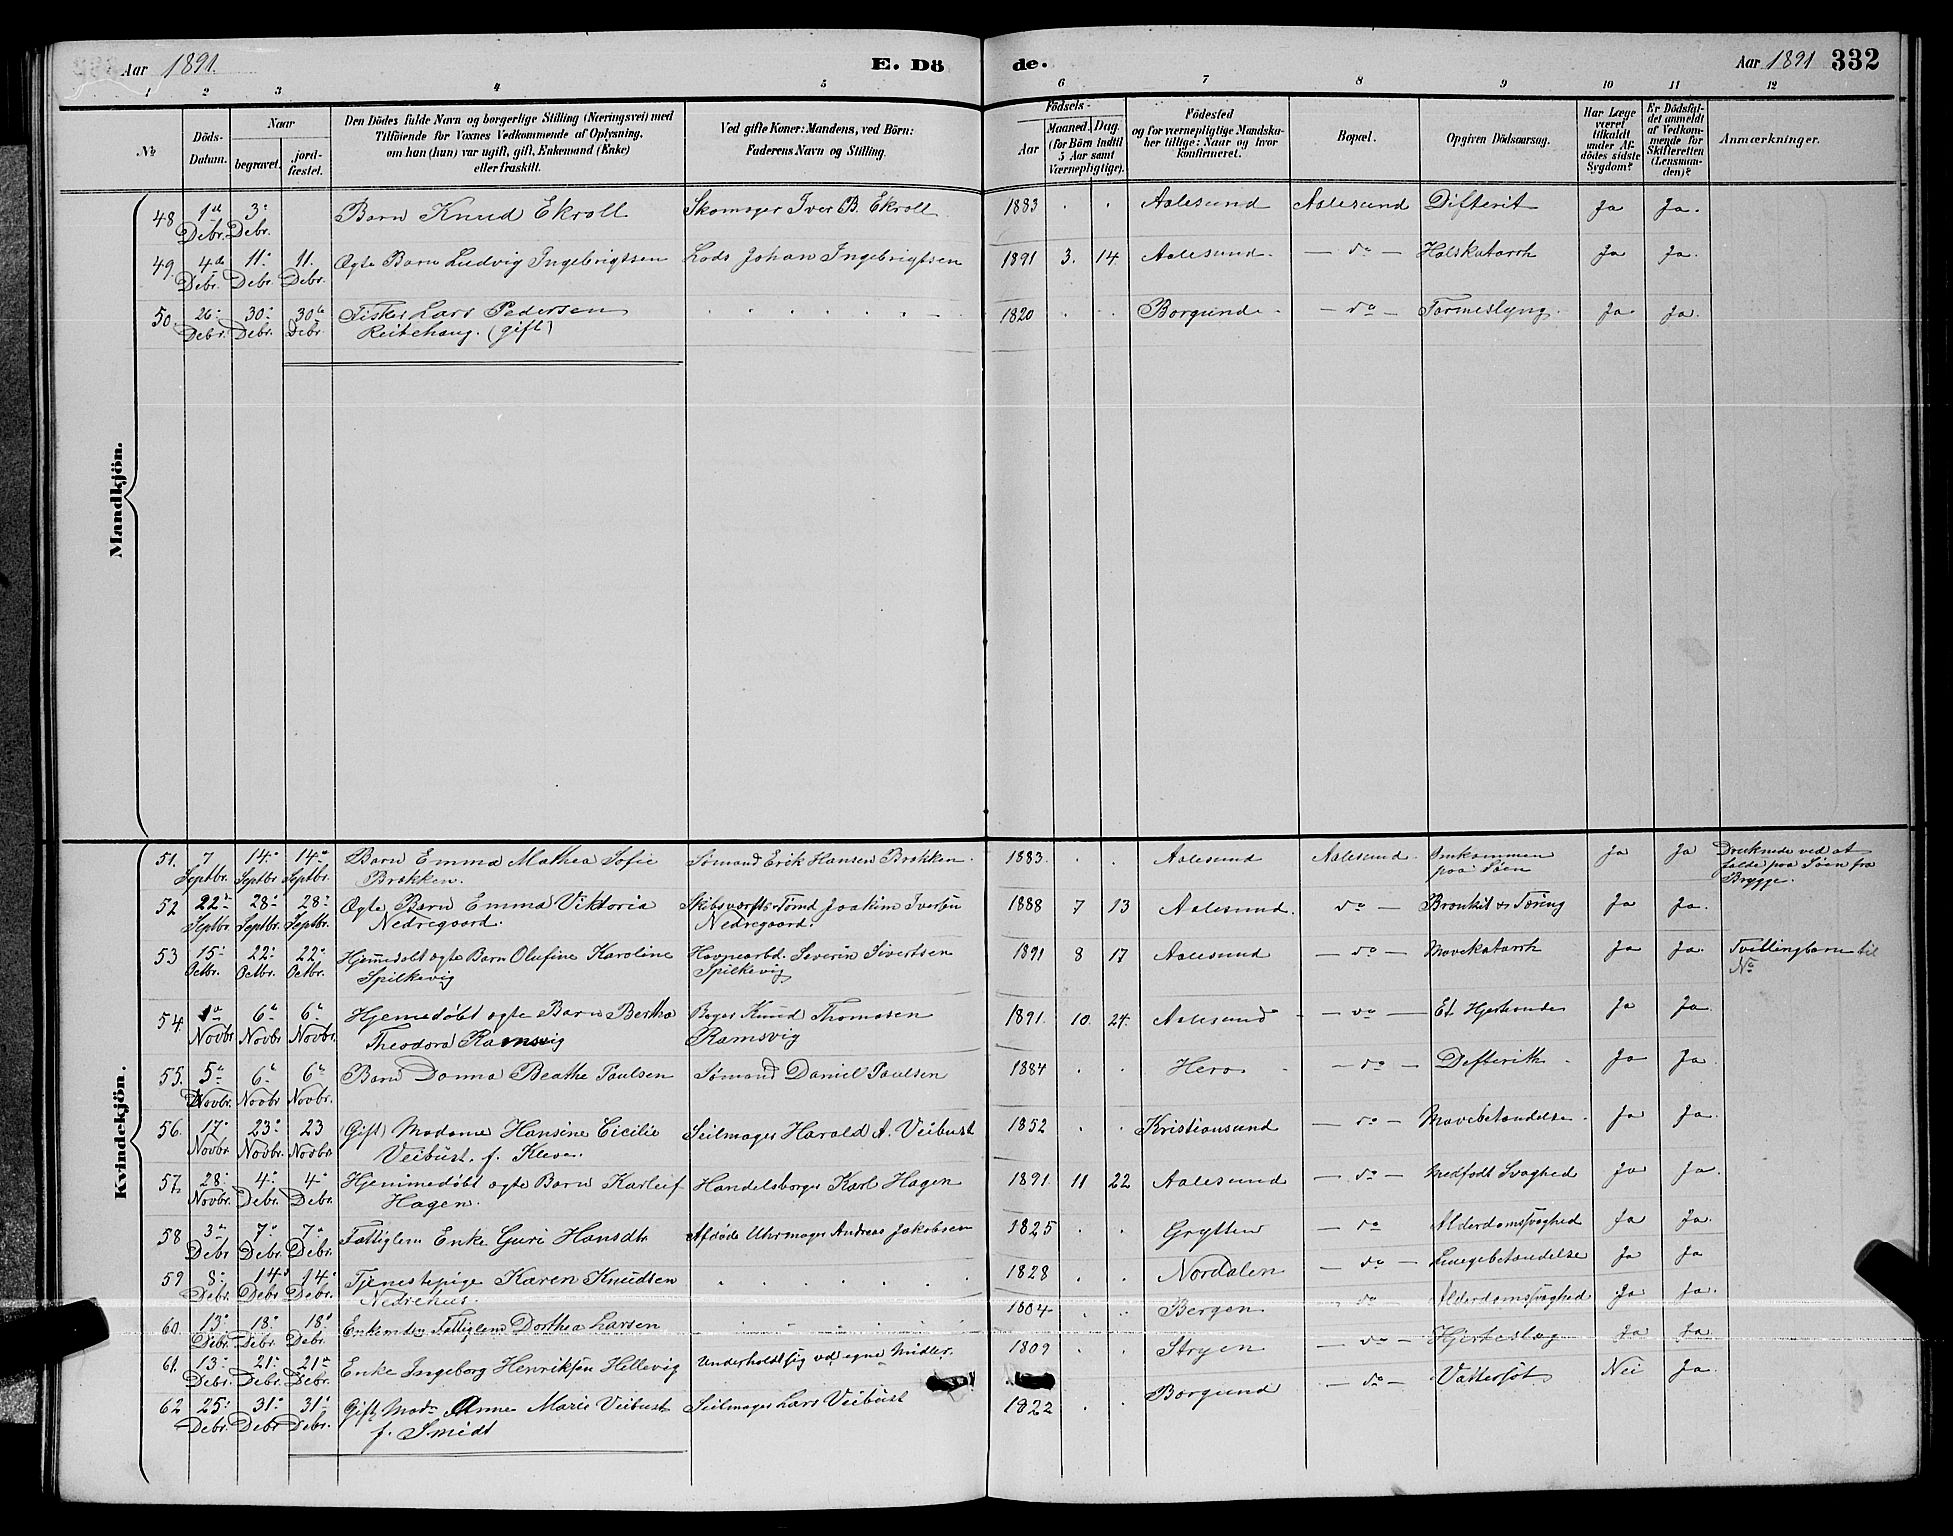 Aar 1891. E. Dö de. Aar 1891 332
1 2 3 4 5 6 7 8 9 10 11 12
№
Döds-Datum.
Naar
begravet. jord-fæstet.
Den Dödes fulde Navn og borgerlige Stilling (Næringsvei) med
Tilföiende for Voxnes Vedkommende af Oplysning,
om han (hun) var ugift, gift, Enkemand (Enke)
eller fraskilt.
Ved gifte Koner: Mandens, ved Börn:
Faderens Navn og Stilling.
Födsels-
Aar
Maaned. Dag.
(for Börn indtil
5 Aar samt
Værnepligtige).
Födested
og for værnepligtige Mandska-
ber tillige: Naar og hvor
konfirmeret.
Bopæl.
Opgiven Dödsaarsag.
Har Læge
været
tilkaldt
under Af-
dödes sidste
Sygdom?
Er Dödsfal-
det anmeldt
af Vedkom-
mende for
Skifteretten
(Lensman-
den)?
Anmærkninger.
Mandkjön.
48. 1ste Debr. 3. Debr. Barn Knud Ekroll Skomager Iver B. Ekroll 1883 . . Aalesund Aalesund Difterit Ja Ja.
49. 4de Debr. 11. Debr. 11. Debr. Ægte Barn Ludvig Ingebrigtsen Lods Johan Ingebrigtsen 1891 3. 14. Aalesund. — do — Halskatarrh Ja Ja.
50. 26. Debr. 30. Debr. 30te Debr. Fisker Lars Pedersen
Reitehaug. (gift) 1820 . . Borgund. — do — Tarmeslyng. Ja Ja.
Kvindekjön.
51. 7 Septbr. 14. Septbr. 14. Septbr. Barn Emma Mathea Sofie
Brekken. Sømand Erik Hansen Brekken. 1883. . . Aalesund Aalesund. Omkommen
paa Søen Ja Ja Druknede ved at
falde paa Søen fra
Brygge.
52 22. Septbr. 28. Septbr. 28. Septbr. Ægte Barn Emma Viktoria
Nedregaard. Skibsværfts-Tømd Joakim
Nedregaard. 1888 7 13 Aalesund. do — Bronkit & Tæring Ja Ja.
53 15. Octbr. 22. Octbr. 22. Octbr. Hjemmedøbt ægte Barn Olufine Karoline
Spilkevig Havnearbd. Severin Sivertsen
Spilkevig 1891 8 17 Aalesund — do — Mavekatarrh Ja Ja. Tvillingbarn til
No
54. 1. Novbr 6. Novbr. 6. Novbr. Hjemmedøbt ægte Barn Bertha
Theodora Ramsvig Bager Knud Thomasen
Ramsvig 1891. 10. 24. Aalesund — do — Ja Ja.
55. 5. Novbr. 6. Novbr 6. Novbr. Barn Donna Beathe Paulsen Sømand Daniel Paulsen 1884 . . Herø — do — Defterith Ja Ja.
56. 17. Novbr 23. Novbr. 23 Novbr. (Gift) Madame Hansine Cicilie
Veibust. f. Kleven. Seilmager Harald A. Veibust 1852 . . Kristiansund — do — Mavebetændelse. Ja Ja.
57. 28. Novbr. 4. Debr. 4. Debr. Hjemmedøbt ægte Barn Karleif
Hagen. Handelsborger Karl Hagen 1891. 11 22 Aalesund — do — Medfødt Svaghed Ja Ja.
58 3. Debr 7. Debr. 7. Debr. Fattiglem Enke Guri Hansdtr Afdøde Uhrmager Andreas Jakobsen 1825 . . Grytten — do Alderdomssvaghed Ja Ja.
59 8. Debr. 14. Debr 14. Debr. Tjenestepige Karen Knudsen
Nedrehus. 1828 . . Nordalen — do — Lungebetændelse Ja Ja
60. 13. Debr. 18. Debr. 18. Debr. Fattiglem Dorthea Larsen 1804 . . Bergen — do — Alderdomssvaghed Ja Ja.
61. 13. Debr. 21. Debr. 21. Debr. Enke Ingeborg Henriksen Hellevig Underholdt sig ved egne Midler. 1809 . . Stryen — do — Hjerteslag Ja Ja
62 25. Debr. 31. Debr 31. Debr. Gift Mad. Anne Marie Veibust
f. Smidt Seilmager Lars Veibust 1822 . . Borgund — do — Vattersot Nei Ja